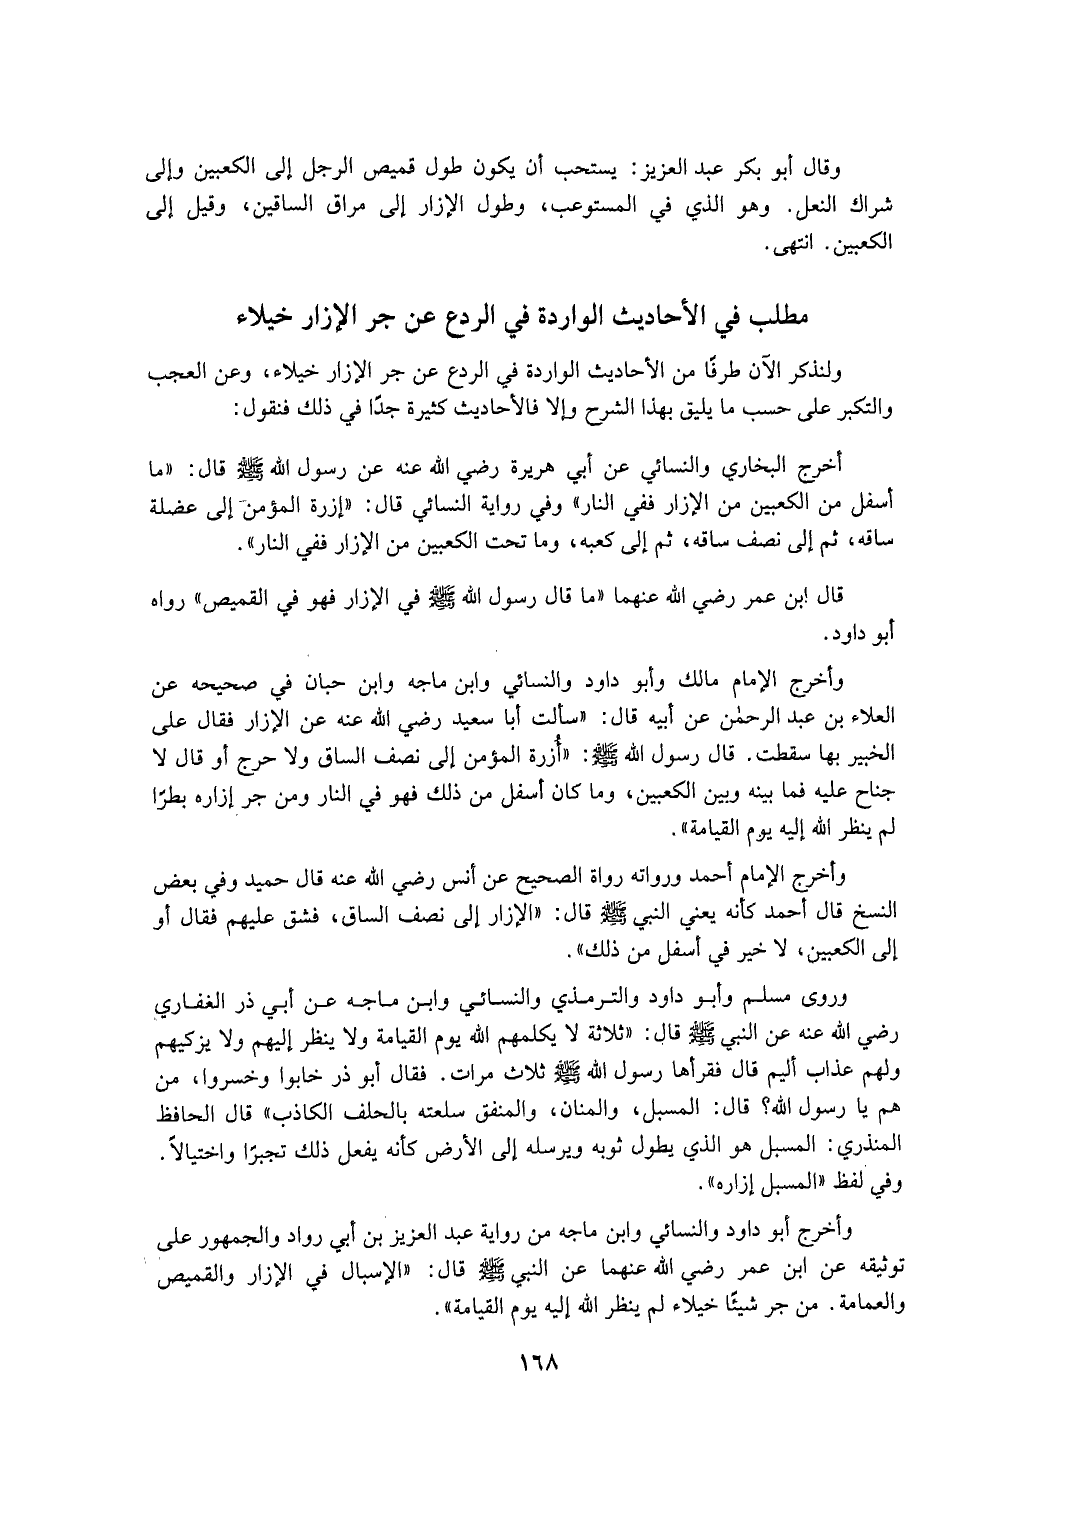 وقال أبو بكر عبد العزيز: يستحب أن يكون طول قميص الرجل إلى الكعبين وإلى
شراك النعل. وهو الذي في المستوعب، وطول الإزار إلى مراق الساقين، وقيل إلى
الكعبين. انتهى.
مطلب في الأحاديث الواردة في الردع عن جر الإزار خيلاء
ولنذكر الآن طرفًا من الأحاديث الواردة في الردع عن جر الإزار خيلاء، وعن العجب
والتكبر على حسب ما يليق بهذا الشرح وإلا فالأحاديث كثيرة جدًا في ذلك فنقول:
أخرج البخاري والنسائي عن أبي هريرة رضي الله عنه عن رسول الله ﷺ قال: «ما
أسفل من الكعبين من الإزار ففي النار» وفي رواية النسائي قال: «إزرة المؤمن إلى عضلة
ساقه، ثم إلى نصف ساقه، ثم إلى كعبه، وما تحت الكعبين من الإزار ففي النار».
قال ابن عمر رضي الله عنهما «ما قال رسول الله ﷺ في الإزار فهو في القميص» رواه
أبو داود.
وأخرج الإمام مالك وأبو داود والنسائي وابن ماجه وابن حبان في صحيحه عن
العلاء بن عبد الرحمٰن عن أبيه قال: «سألت أبا سعيد رضي الله عنه عن الإزار فقال على
الخبير بها سقطت. قال رسول الله ﷺ: «أُزرة المؤمن إلى نصف الساق ولا حرج أو قال لا
جناح عليه فما بينه وبين الكعبين، وما كان أسفل من ذلك فهو في النار ومن جر إزاره بطرًا
لم ينظر الله إليه يوم القيامة».
وأخرج الإمام أحمد ورواته رواة الصحيح عن أنس رضي الله عنه قال حميد وفي بعض
النسخ قال أحمد كأنه يعني النبي ﷺ قال: «الإزار إلى نصف الساق، فشق عليهم فقال أو
إلى الكعبين، لا خير في أسفل من ذلك».
وروى مسلم وأبو داود والترمذي والنسائي وابن ماجه عن أبي ذر الغفاري
رضي الله عنه عن النبي ﷺ قال: «ثلاثة لا يكلمهم الله يوم القيامة ولا ينظر إليهم ولا يزكيهم
ولهم عذاب أليم قال فقرأها رسول الله ﷺ ثلاث مرات. فقال أبو ذر خابوا وخسروا، من
هم يا رسول الله؟ قال: المسبل، والمنان، والمنفق سلعته بالحلف الكاذب» قال الحافظ
المنذري: المسبل هو الذي يطول ثوبه ويرسله إلى الأرض كأنه يفعل ذلك تجبرًا واختيالاً.
وفي لفظ «المسبل إزاره».
وأخرج أبو داود والنسائي وابن ماجه من رواية عبد العزيز بن أبي رواد والجمهور على
توثيقه عن ابن عمر رضي الله عنهما عن النبي ﷺ قال: «الإسبال في الإزار والقميص
والعمامة. من جر شيئًا خيلاء لم ينظر الله إليه يوم القيامة».
١٦٨